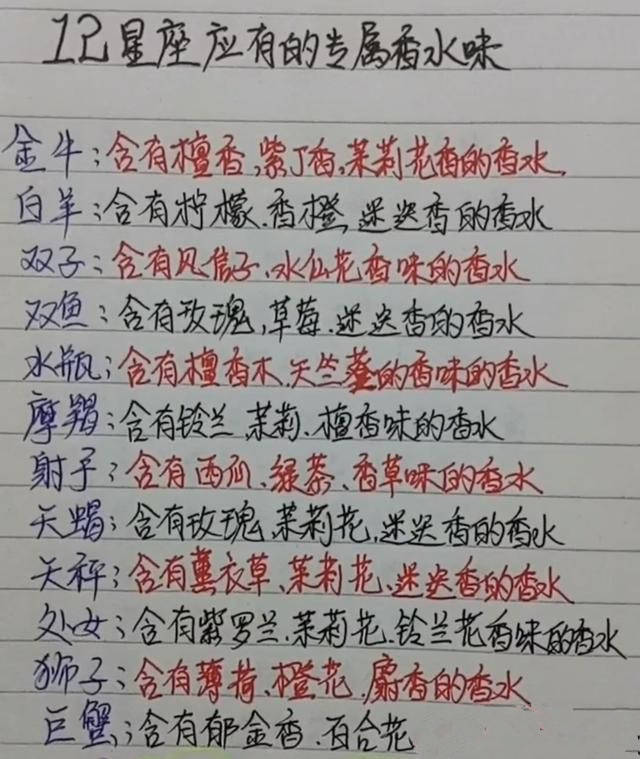 12星座应有的专属香水味
金牛:含有檀香,紫丁香,茉莉花香的香水,
白羊:含有柠檬、香橙,迷迭香的香水
双子:含有风信子、水仙花香味的香水
双鱼:含有玫瑰,草莓、迷迭香的香水
水瓶:含有檀香木、天竺葵的香味的香水
摩羯:含有铃兰、茉莉、檀香味的香水
射手:含有西瓜、绿茶、香草味的香水
天蝎:含有玫瑰,茉莉花,迷迭香的香水
天秤:含有薰衣草、茉莉花、迷迭香的香水
处女:含有紫罗兰、茉莉花、铃兰花香味的香水
狮子:含有薄荷、橙花、麝香的香水
巨蟹:含有郁金香、百合花